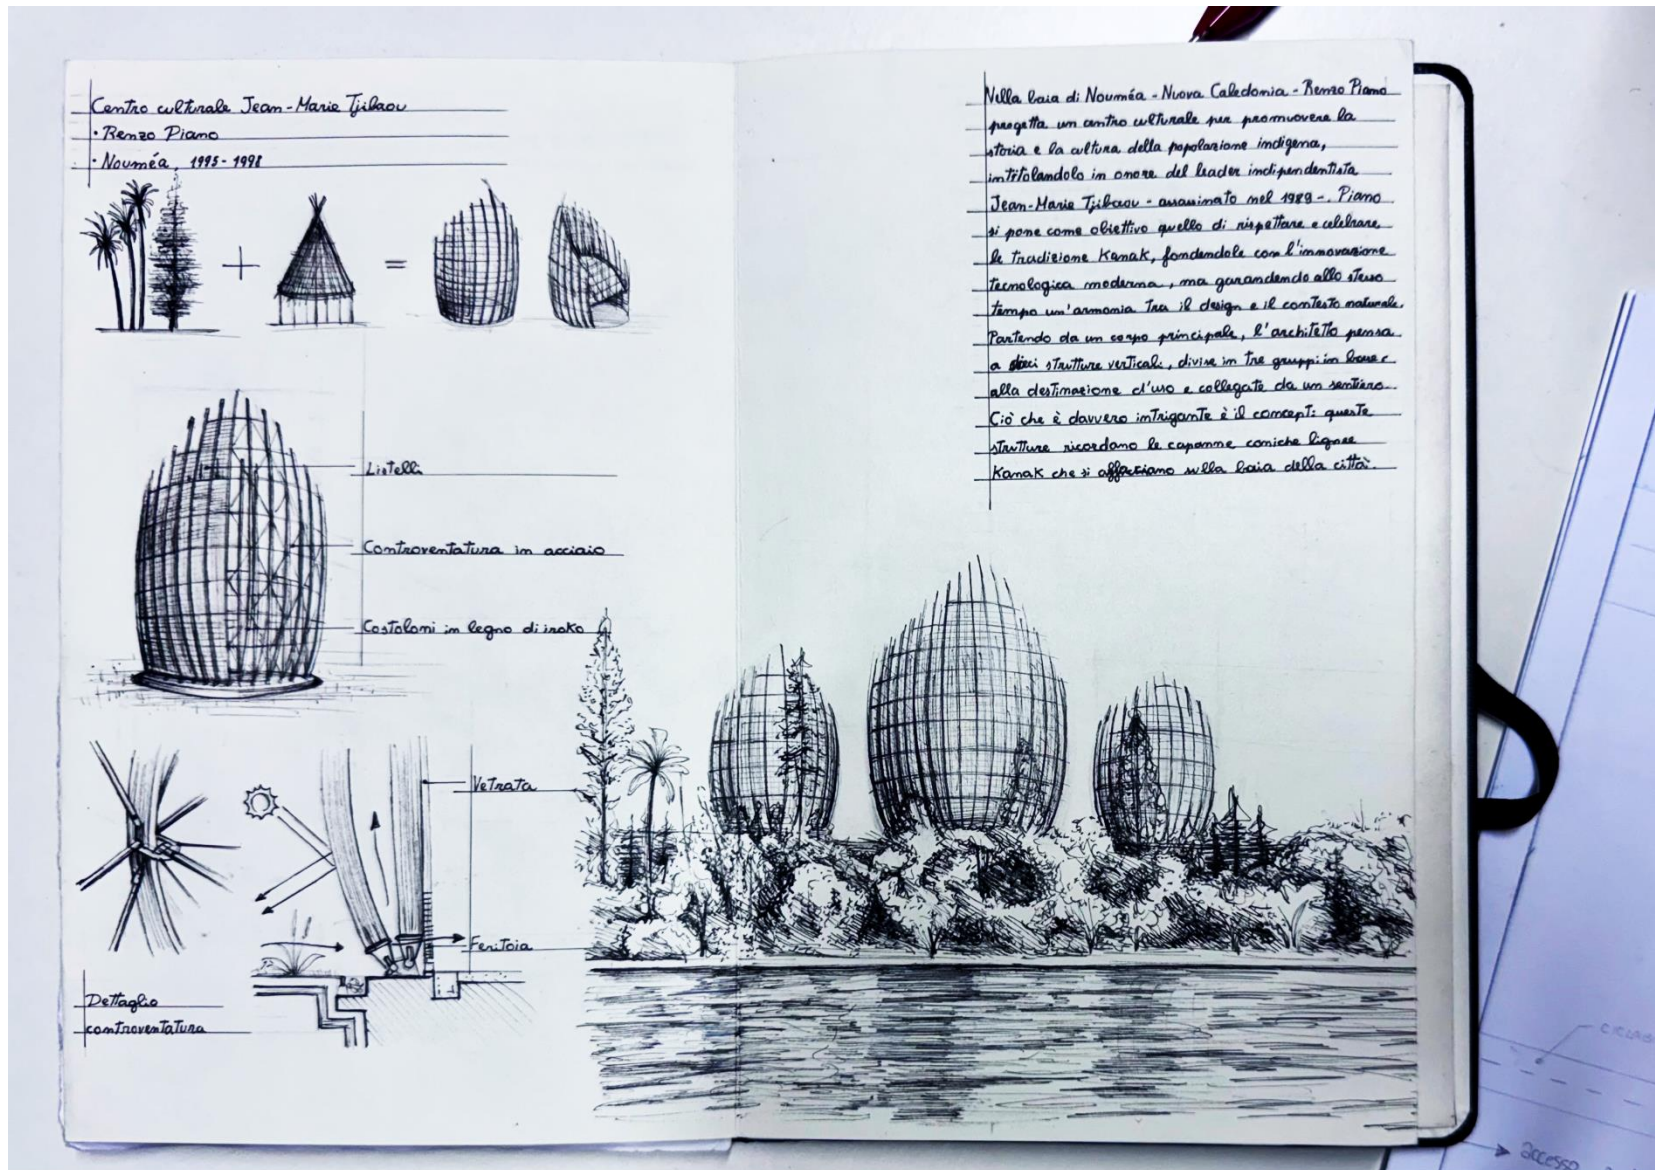 Centro culturale Jean-Marie Tjibaou
• Renzo Piano
• Nouméa, 1995-1998
Listelli
Controventatura in acciaio
Costoloni in legno di iroko
Vetrata
Feritoia
Dettaglio
controventatura
Nella baia di Nouméa - Nuova Caledonia - Renzo Piano
progetta un centro culturale per promuovere la
storia e la cultura della popolazione indigena,
intitolandolo in onore del leader indipendentista
Jean-Marie Tjibaou - assassinato nel 1989 -. Piano
si pone come obiettivo quello di rispettare e celebrare
le tradizione Kanak, fondendole con l'innovazione
tecnologica moderna, ma garandendo allo stesso
tempo un'armonia tra il design e il contesto naturale.
Partendo da un corpo principale, l'architetto pensa
a dieci strutture verticali, divise in tre gruppi in base
alla destinazione d'uso e collegate da un sentiero.
Ciò che è davvero intrigante è il concept: queste
strutture ricordano le capanne coniche lignee
Kanak che si affacciano sulla baia della città.
accesso